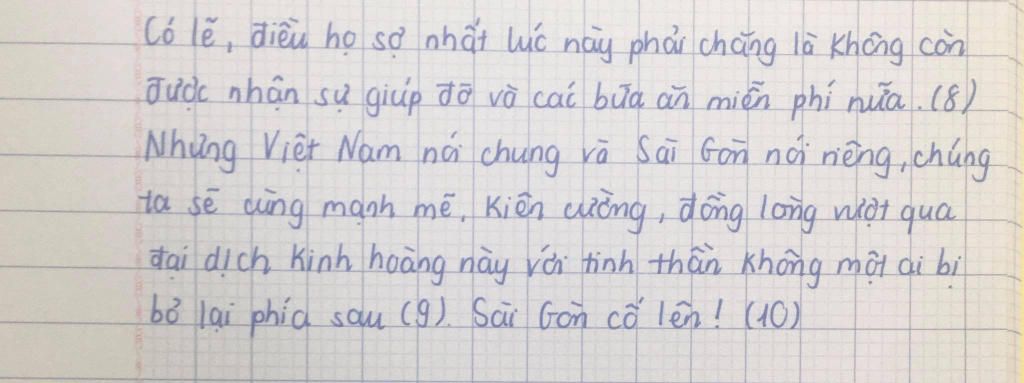 Có lẽ, điều họ sợ nhất lúc này phải chăng là không còn
được nhận sự giúp đỡ và các bữa ăn miễn phí nữa. (8)
Nhưng Việt Nam nói chung và Sài Gòn nói riêng, chúng
ta sẽ cùng mạnh mẽ, kiên cường, đồng lòng vượt qua
đại dịch kinh hoàng này với tinh thần không một ai bị
bỏ lại phía sau (9). Sài Gòn cố lên! (10)